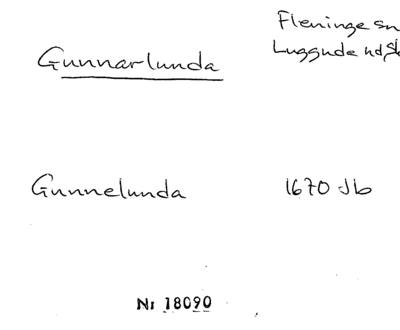 Fleninge sn
Gunnarlunda
Luggude hd, Sk
Gunnelunda 1670 Jb
Nr 18090